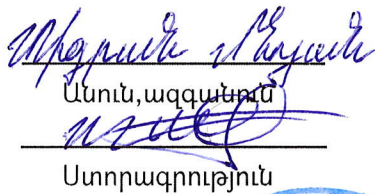 Տիգրան
Անուն,ազգանուն
Ստորագրություն